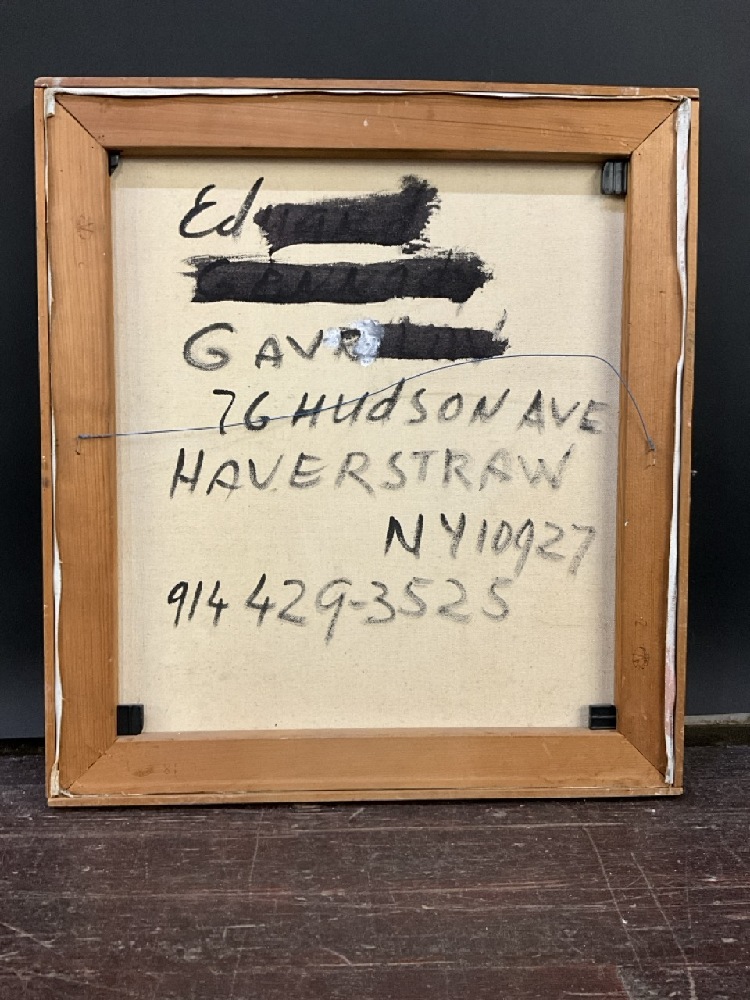 Ed
GAVR
76 HUdSON AVE
HAVERSTRAW
NY 10927
914 429-3525